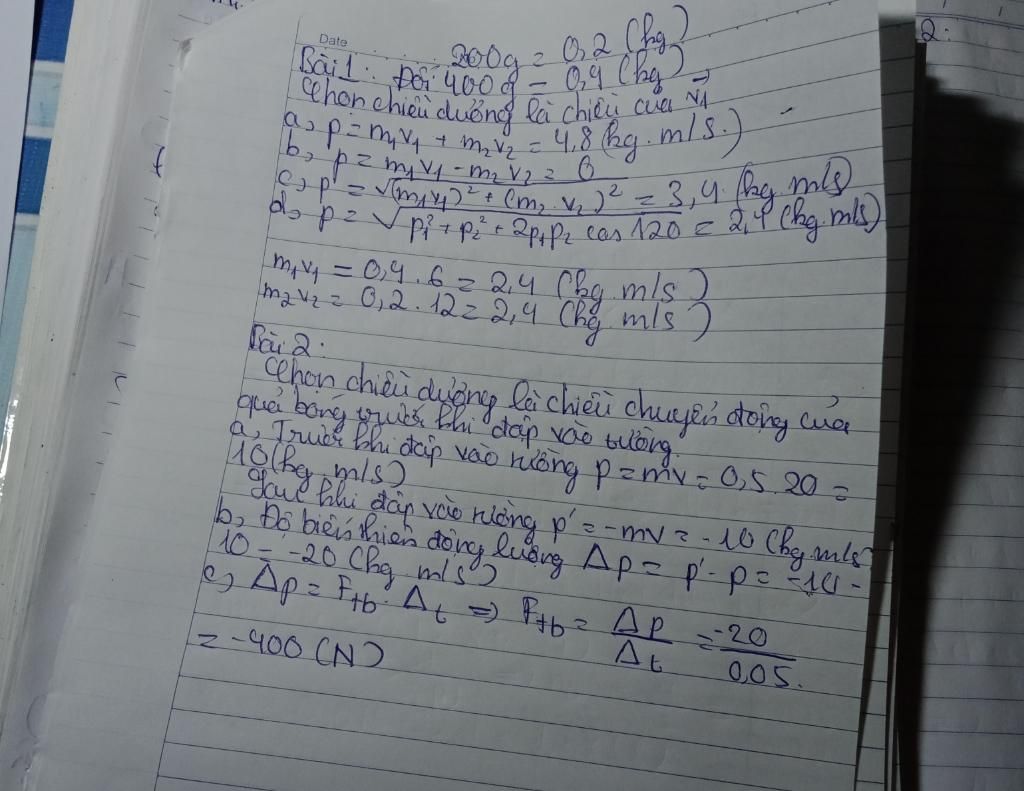 Date
200g = 0,2 (kg)
Bài 1: Đổi 400g = 0,4 (kg)
Chọn chiều dương là chiều của v₁
a, p = m₁v₁ + m₂v₂ = 4,8 (kg.m/s.)
b, p = m₁v₁ - m₂v₂ = 0
c, p = √(m₁v₁)² + (m₂.v₂)² = 3,4 (kg m/s)
d, p = √p₁² + p₂² + 2p₁p₂ cos 120 = 2,4 (kg.m/s)
m₁v₁ = 0,4 . 6 = 2,4 (kg m/s)
m₂v₂ = 0,2 . 12 = 2,4 (kg m/s)
Bài 2:
Chọn chiều dương là chiều chuyển động của
quả bóng trước khi đập vào tường.
a, Trước khi đập vào tường p = mv = 0,5.20 =
10 (kg m/s)
Sau khi đập vào tường p' = -mv = -10 (kg m/s
b, Độ biến thiên động lượng Δp = p' - p = -10 -
10 = -20 (kg m/s)
c, Δp = Ftb . Δt => Ftb = Δp/Δt = -20/0,05.
= -400 (N)
2.